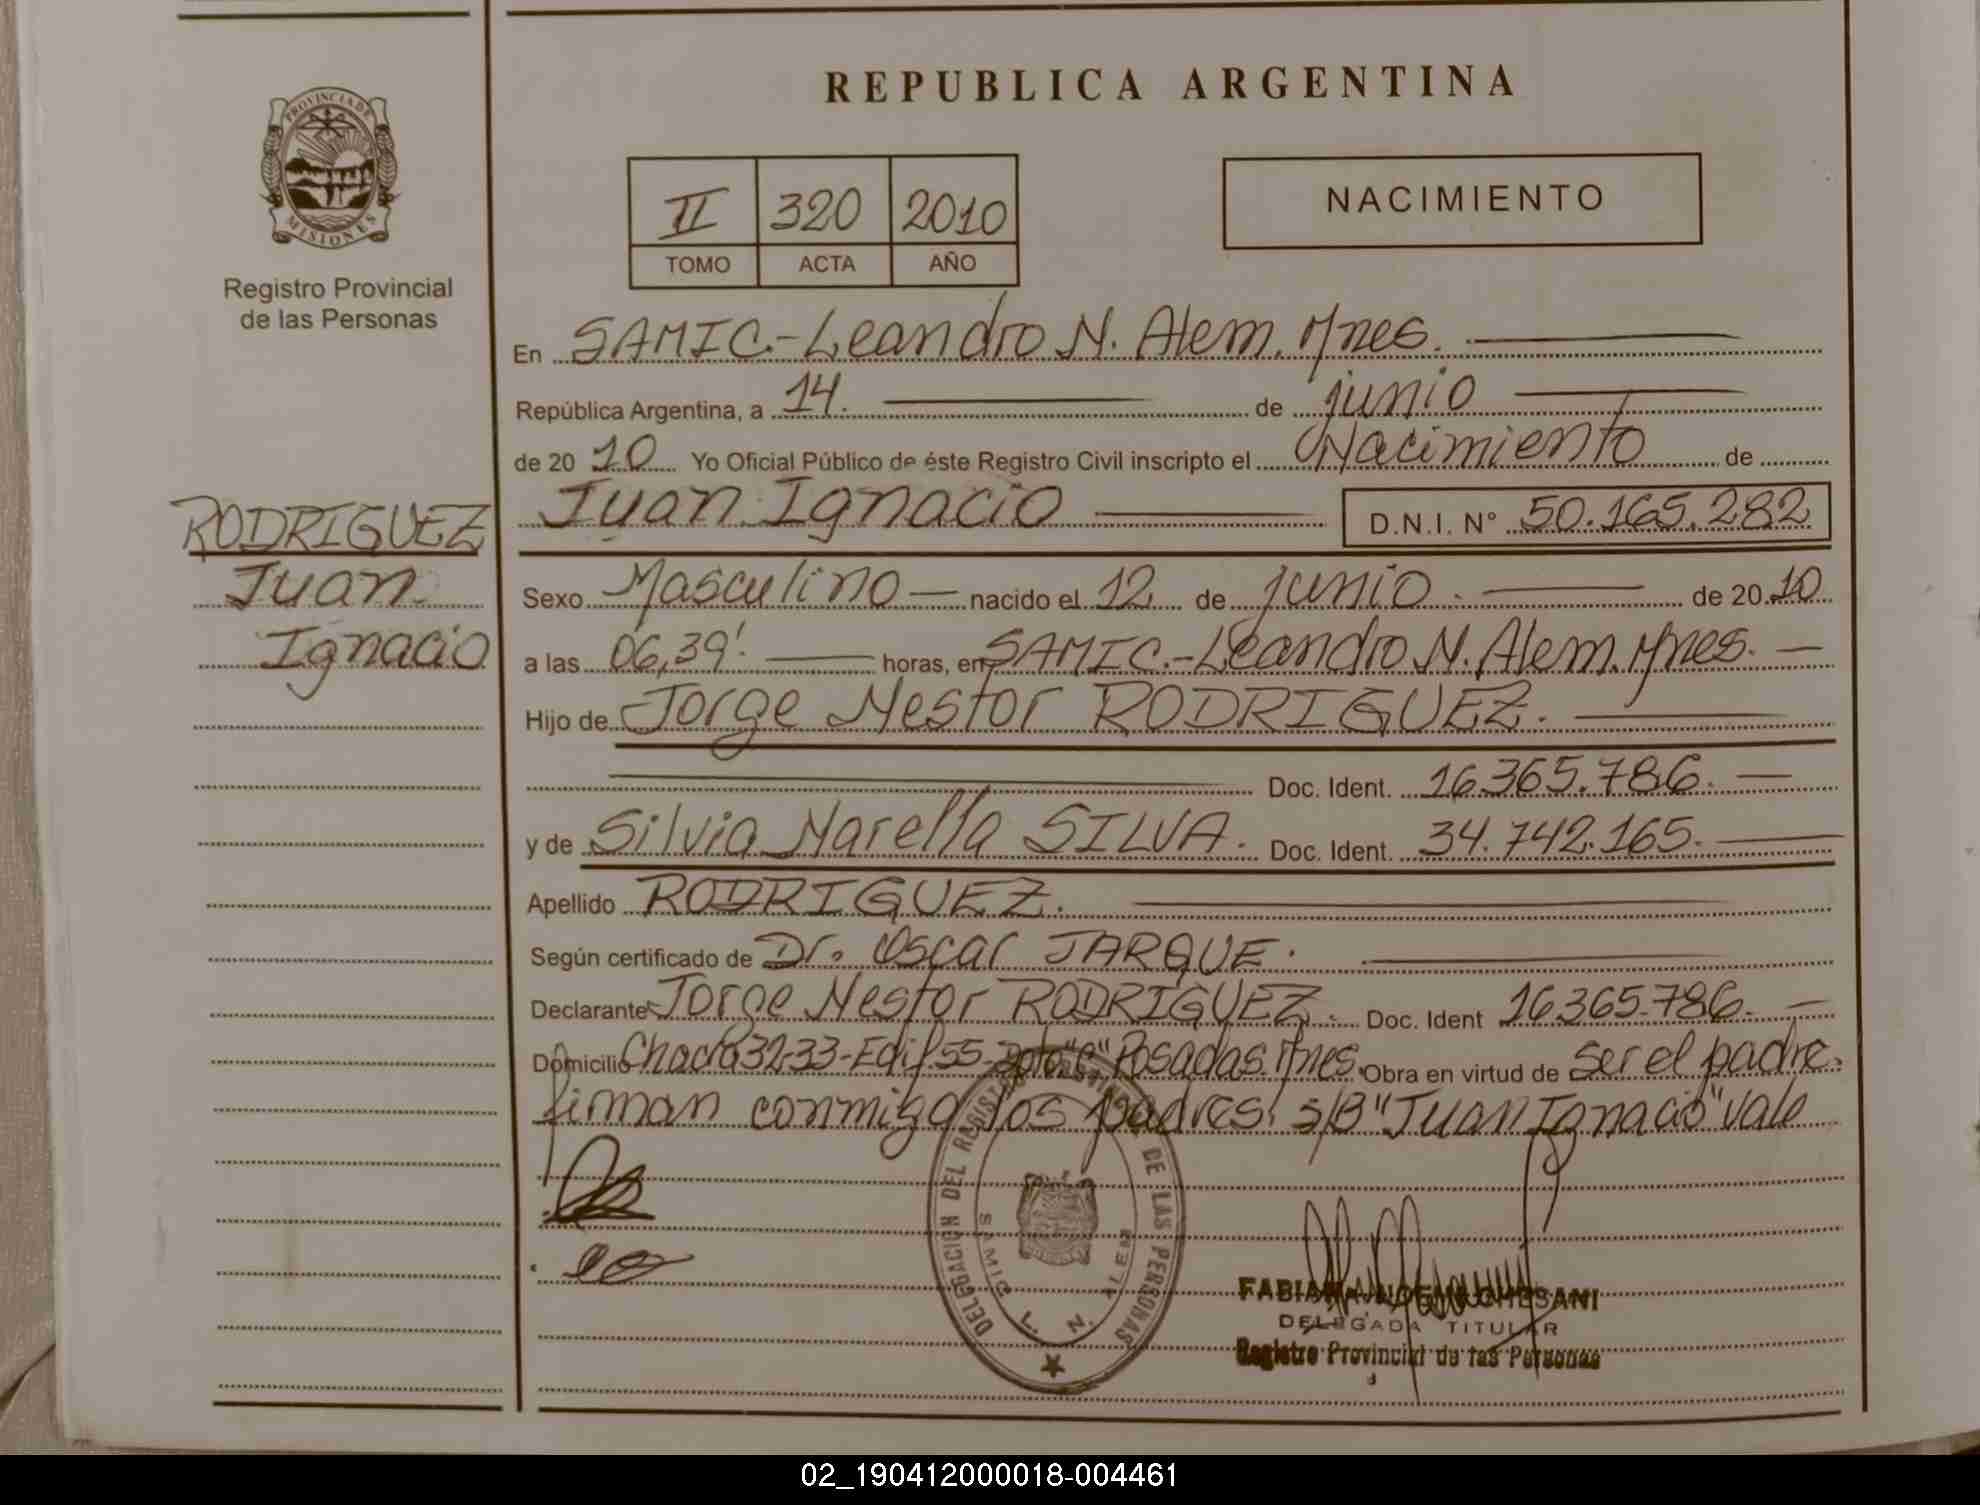 REPUBLICA ARGENTINA
PROVINCIA DE
MISIONES
Registro Provincial
de las Personas
II 320 2010
TOMO ACTA AÑO
NACIMIENTO
En SAMIC.-Leandro N. Alem. Mnes.
República Argentina, a 14. de junio
de 20 10 Yo Oficial Público de éste Registro Civil inscripto el Nacimiento de
Juan Ignacio D.N.I. N° 50.165.282
RODRIGUEZ
Juan
Ignacio
Sexo Masculino nacido el 12 de junio. de 20 10
a las 06,39'. horas, en SAMIC.-Leandro N. Alem. Mnes.
Hijo de Jorge Nestor RODRIGUEZ.
Doc. Ident. 16.365.786.
y de Silvia Marella SILVA. Doc. Ident. 34.742.165.
Apellido RODRIGUEZ.
Según certificado de Dr. Oscar JARQUE.
Declarante Jorge Nestor RODRIGUEZ. Doc. Ident 16.365.786.
Domicilio Chacra 32-33-Edif.55-Dpto"C" Posadas. Mnes. Obra en virtud de ser el padre.
firman conmigo los padres. s/B "Juan Ignacio" vale
DELEGACION DEL REGISTRO DE LAS PERSONAS
SAMIC L. N. ALEM
DELEGADA TITULAR
Registro Provincial de las Personas
02_190412000018-004461